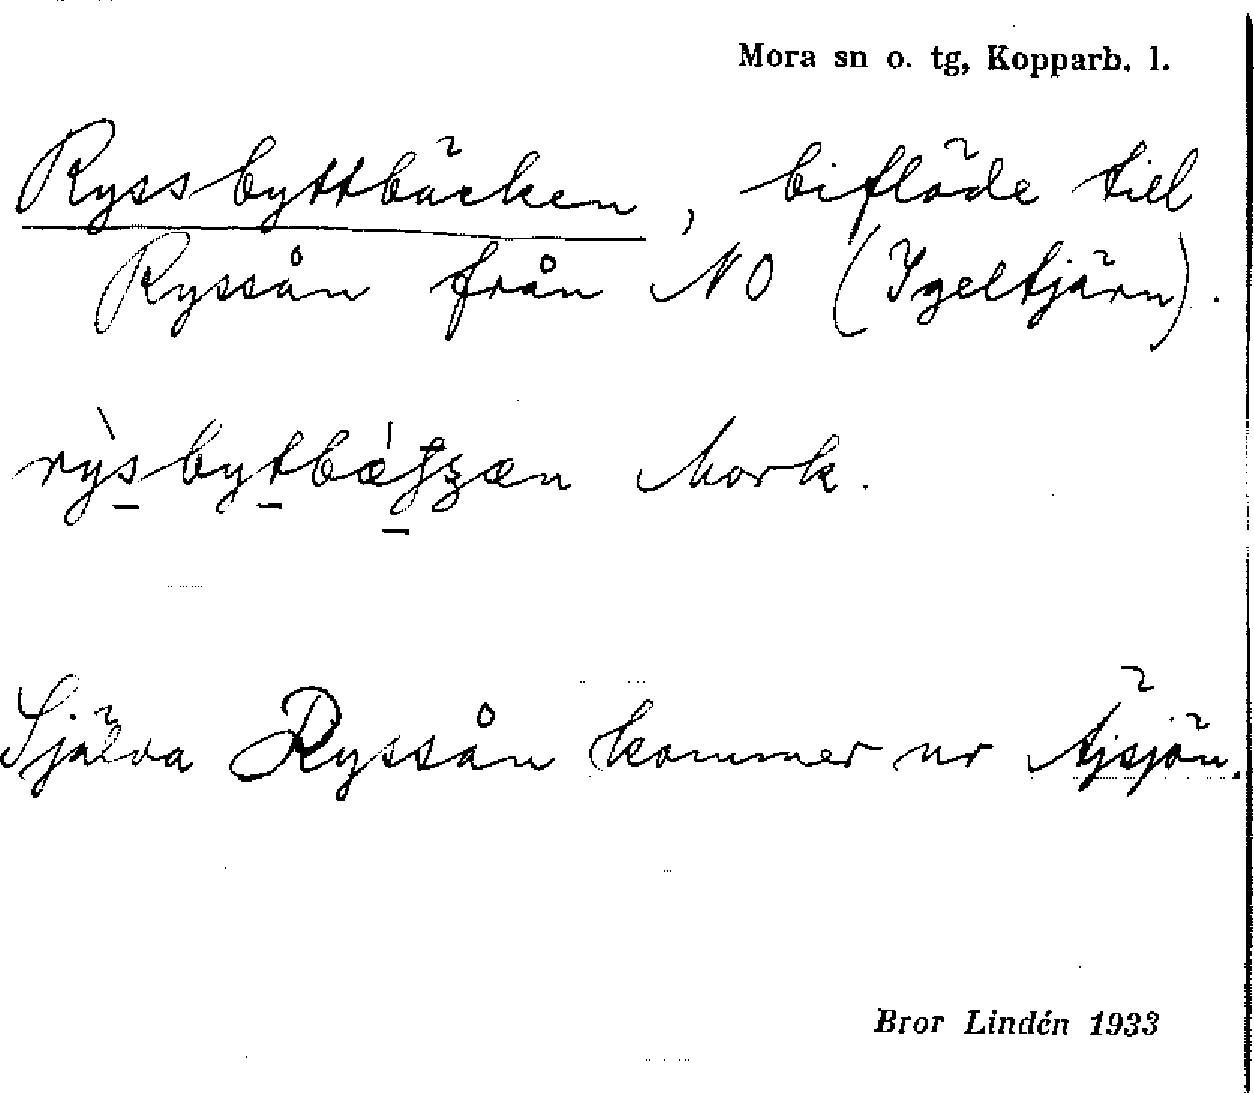 Mora sn o. tg, Kopparb. l.
Ryssbyttbäcken, biflöde till
Ryssån från NO (Igeltjärn).
Mork.
Själva Ryssån kommer ur
Bror Lindén 1933